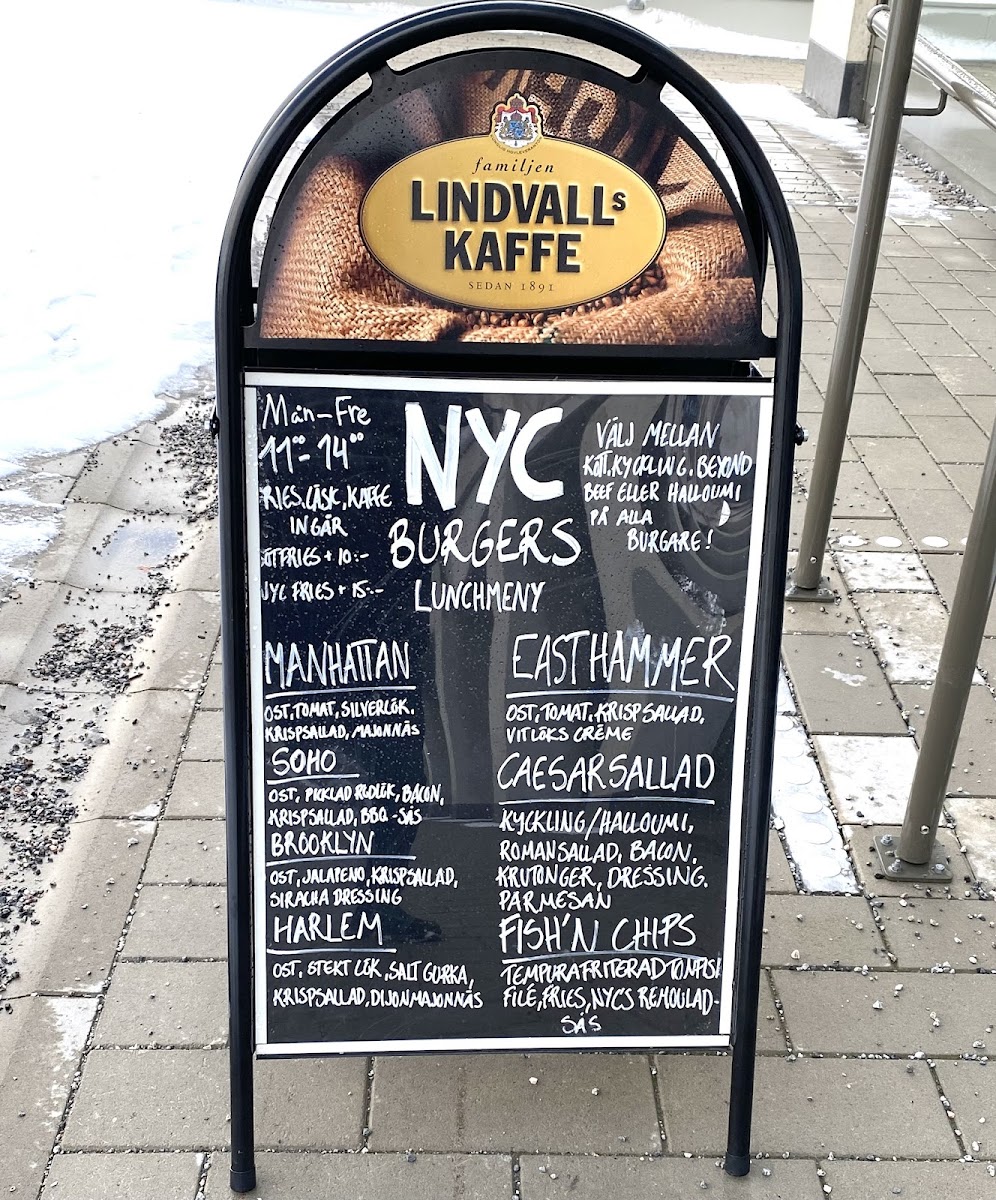 familjen
LINDVALLs
KAFFE
SEDAN 1891
Mån-Fre
11:00- 14:00
FRIES, LÄSK, KAFFE
INGÅR
SÖTFRIES + 10:-
NYC FRIES + 15:-
NYC
BURGERS
LUNCHMENY
VÄLJ MELLAN
KÖTT, KYCKLING, BEYOND
BEEF ELLER HALLOUMI
PÅ ALLA
BURGARE!
MANHATTAN
OST, TOMAT, SILVERLÖK,
KRISPSALLAD, MAJONNÄS
SOHO
OST, PICKLAD RÖDLÖK, BACON,
KRISPSALLAD, BBQ-SÅS
BROOKLYN
OST, JALAPENO, KRISPSALLAD,
SIRACHA DRESSING
HARLEM
OST, STEKT LÖK, SALT GURKA,
KRISPSALLAD, DIJONMAJONNÄS
EASTHAMMER
OST, TOMAT, KRISPSALLAD,
VITLÖKS CRÈME
CAESARSALLAD
KYCKLING/HALLOUMI,
ROMANSALLAD, BACON,
KRUTONGER, DRESSING.
PARMESAN
FISH'N CHIPS
TEMPURAFRITERAD
FILÉ, FRIES, NYCS REMOULAD-
SÅS